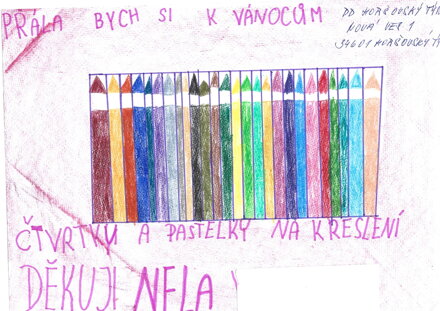 PRÁLA BYCH SI K VÁNOCŮM
DD HORŠOVSKÝ TÝN
NOVÁ VES 1
34601 HORŠOVSKÝ TÝN
ČTVRTKU A PASTELKY NA KRESLENÍ
DĚKUJI NELA